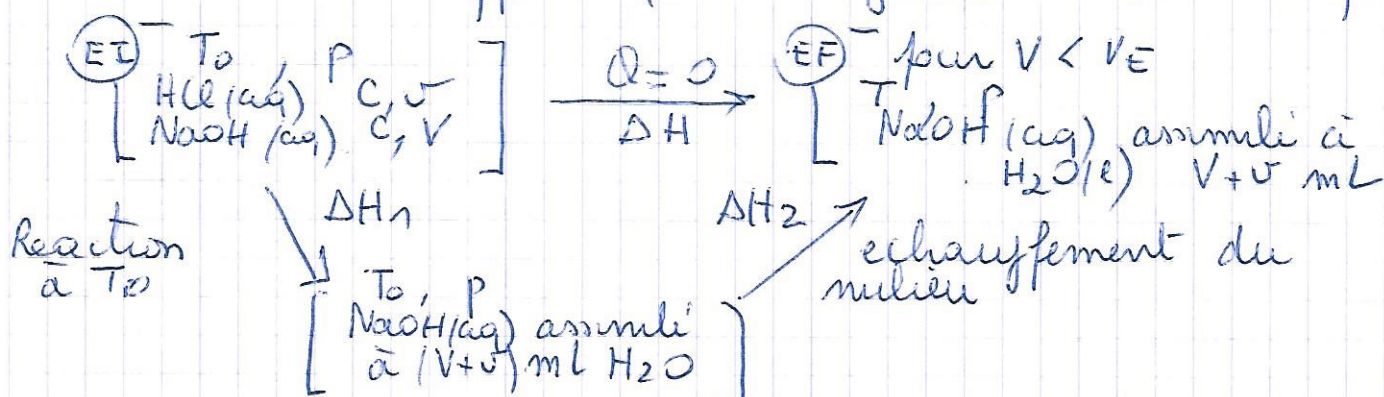 EI T₀, P
HCl(aq) C, v
NaOH(aq) C, V
Q = 0
ΔH
EF pour V < VE
T P
NaOH(aq) assimilé à
H₂O(l) V+v mL
ΔH₁
ΔH₂
Reaction
à T₀
echauffement du
milieu
T₀, P
NaOH(aq) assimilé
à (V+v) ml H₂O